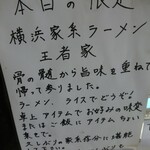 本日の限定
横浜家系ラーメン
王者家
骨の髄から旨味を重ねて
帰って参りました。
ラーメン、ライスでどうぞ!
卓上アイテムでお好みの味変
またはご飯にアイテムちょい
乗せで。